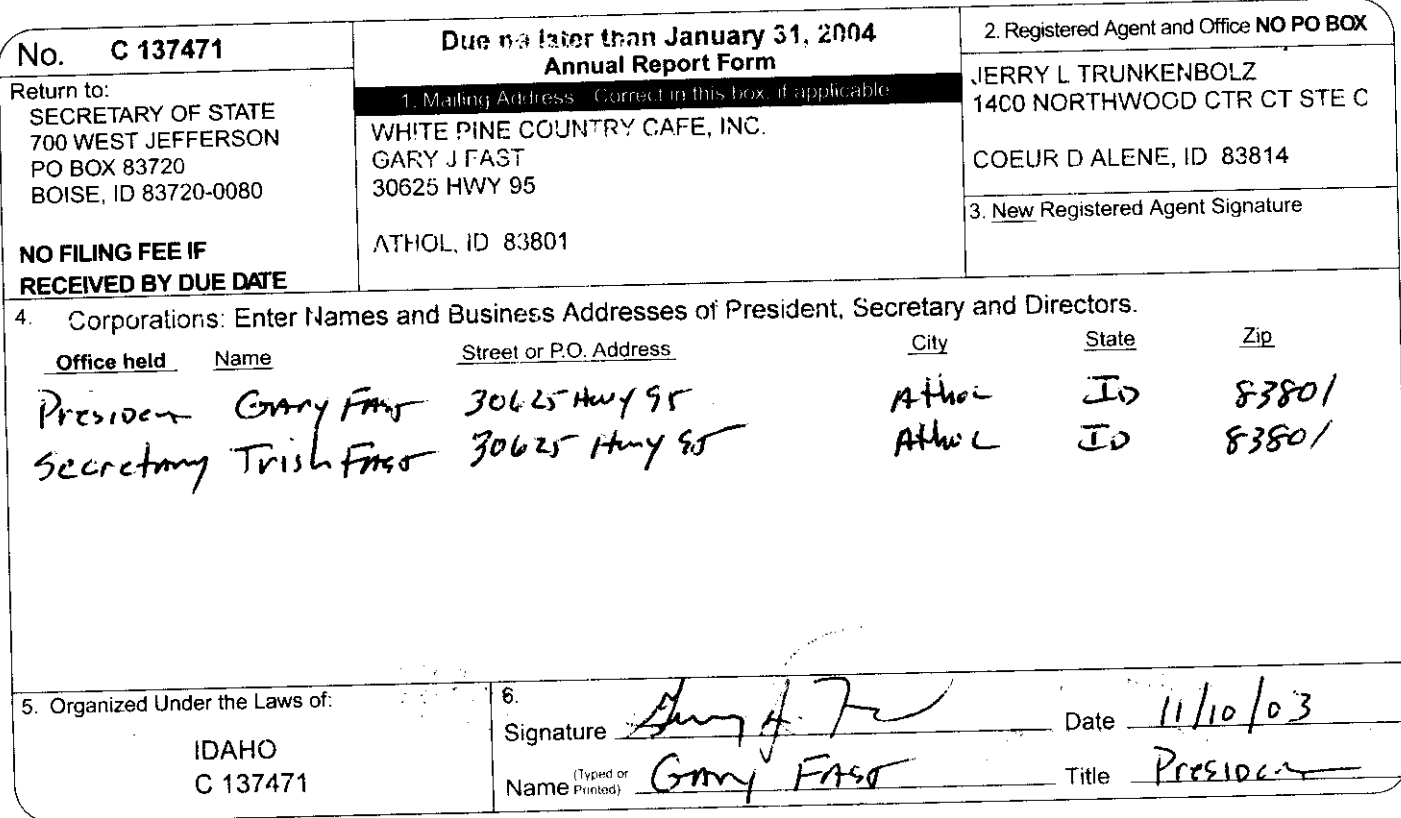 No. C 137471
Return to:
SECRETARY OF STATE
700 WEST JEFFERSON
PO BOX 83720
BOISE, ID 83720-0080
NO FILING FEE IF
RECEIVED BY DUE DATE
Due no later than January 31, 2004
Annual Report Form
1. Mailing Address Correct in this box, if applicable
WHITE PINE COUNTRY CAFE, INC.
GARY J FAST
30625 HWY 95
ATHOL, ID 83801
2. Registered Agent and Office NO PO BOX
JERRY L TRUNKENBOLZ
1400 NORTHWOOD CTR CT STE C
COEUR D ALENE, ID 83814
3. New Registered Agent Signature
4. Corporations: Enter Names and Business Addresses of President, Secretary and Directors.
Office held Name Street or P.O. Address City State Zip
President Gary Fast 30625 Hwy 95 Athol ID 83801
Secretary Trish Fast 30625 Hwy 95 Athol ID 83801
5. Organized Under the Laws of:
IDAHO
C 137471
6.
Signature Gary J. Date 11/10/03
Name (Typed or Printed) Gary Fast Title President